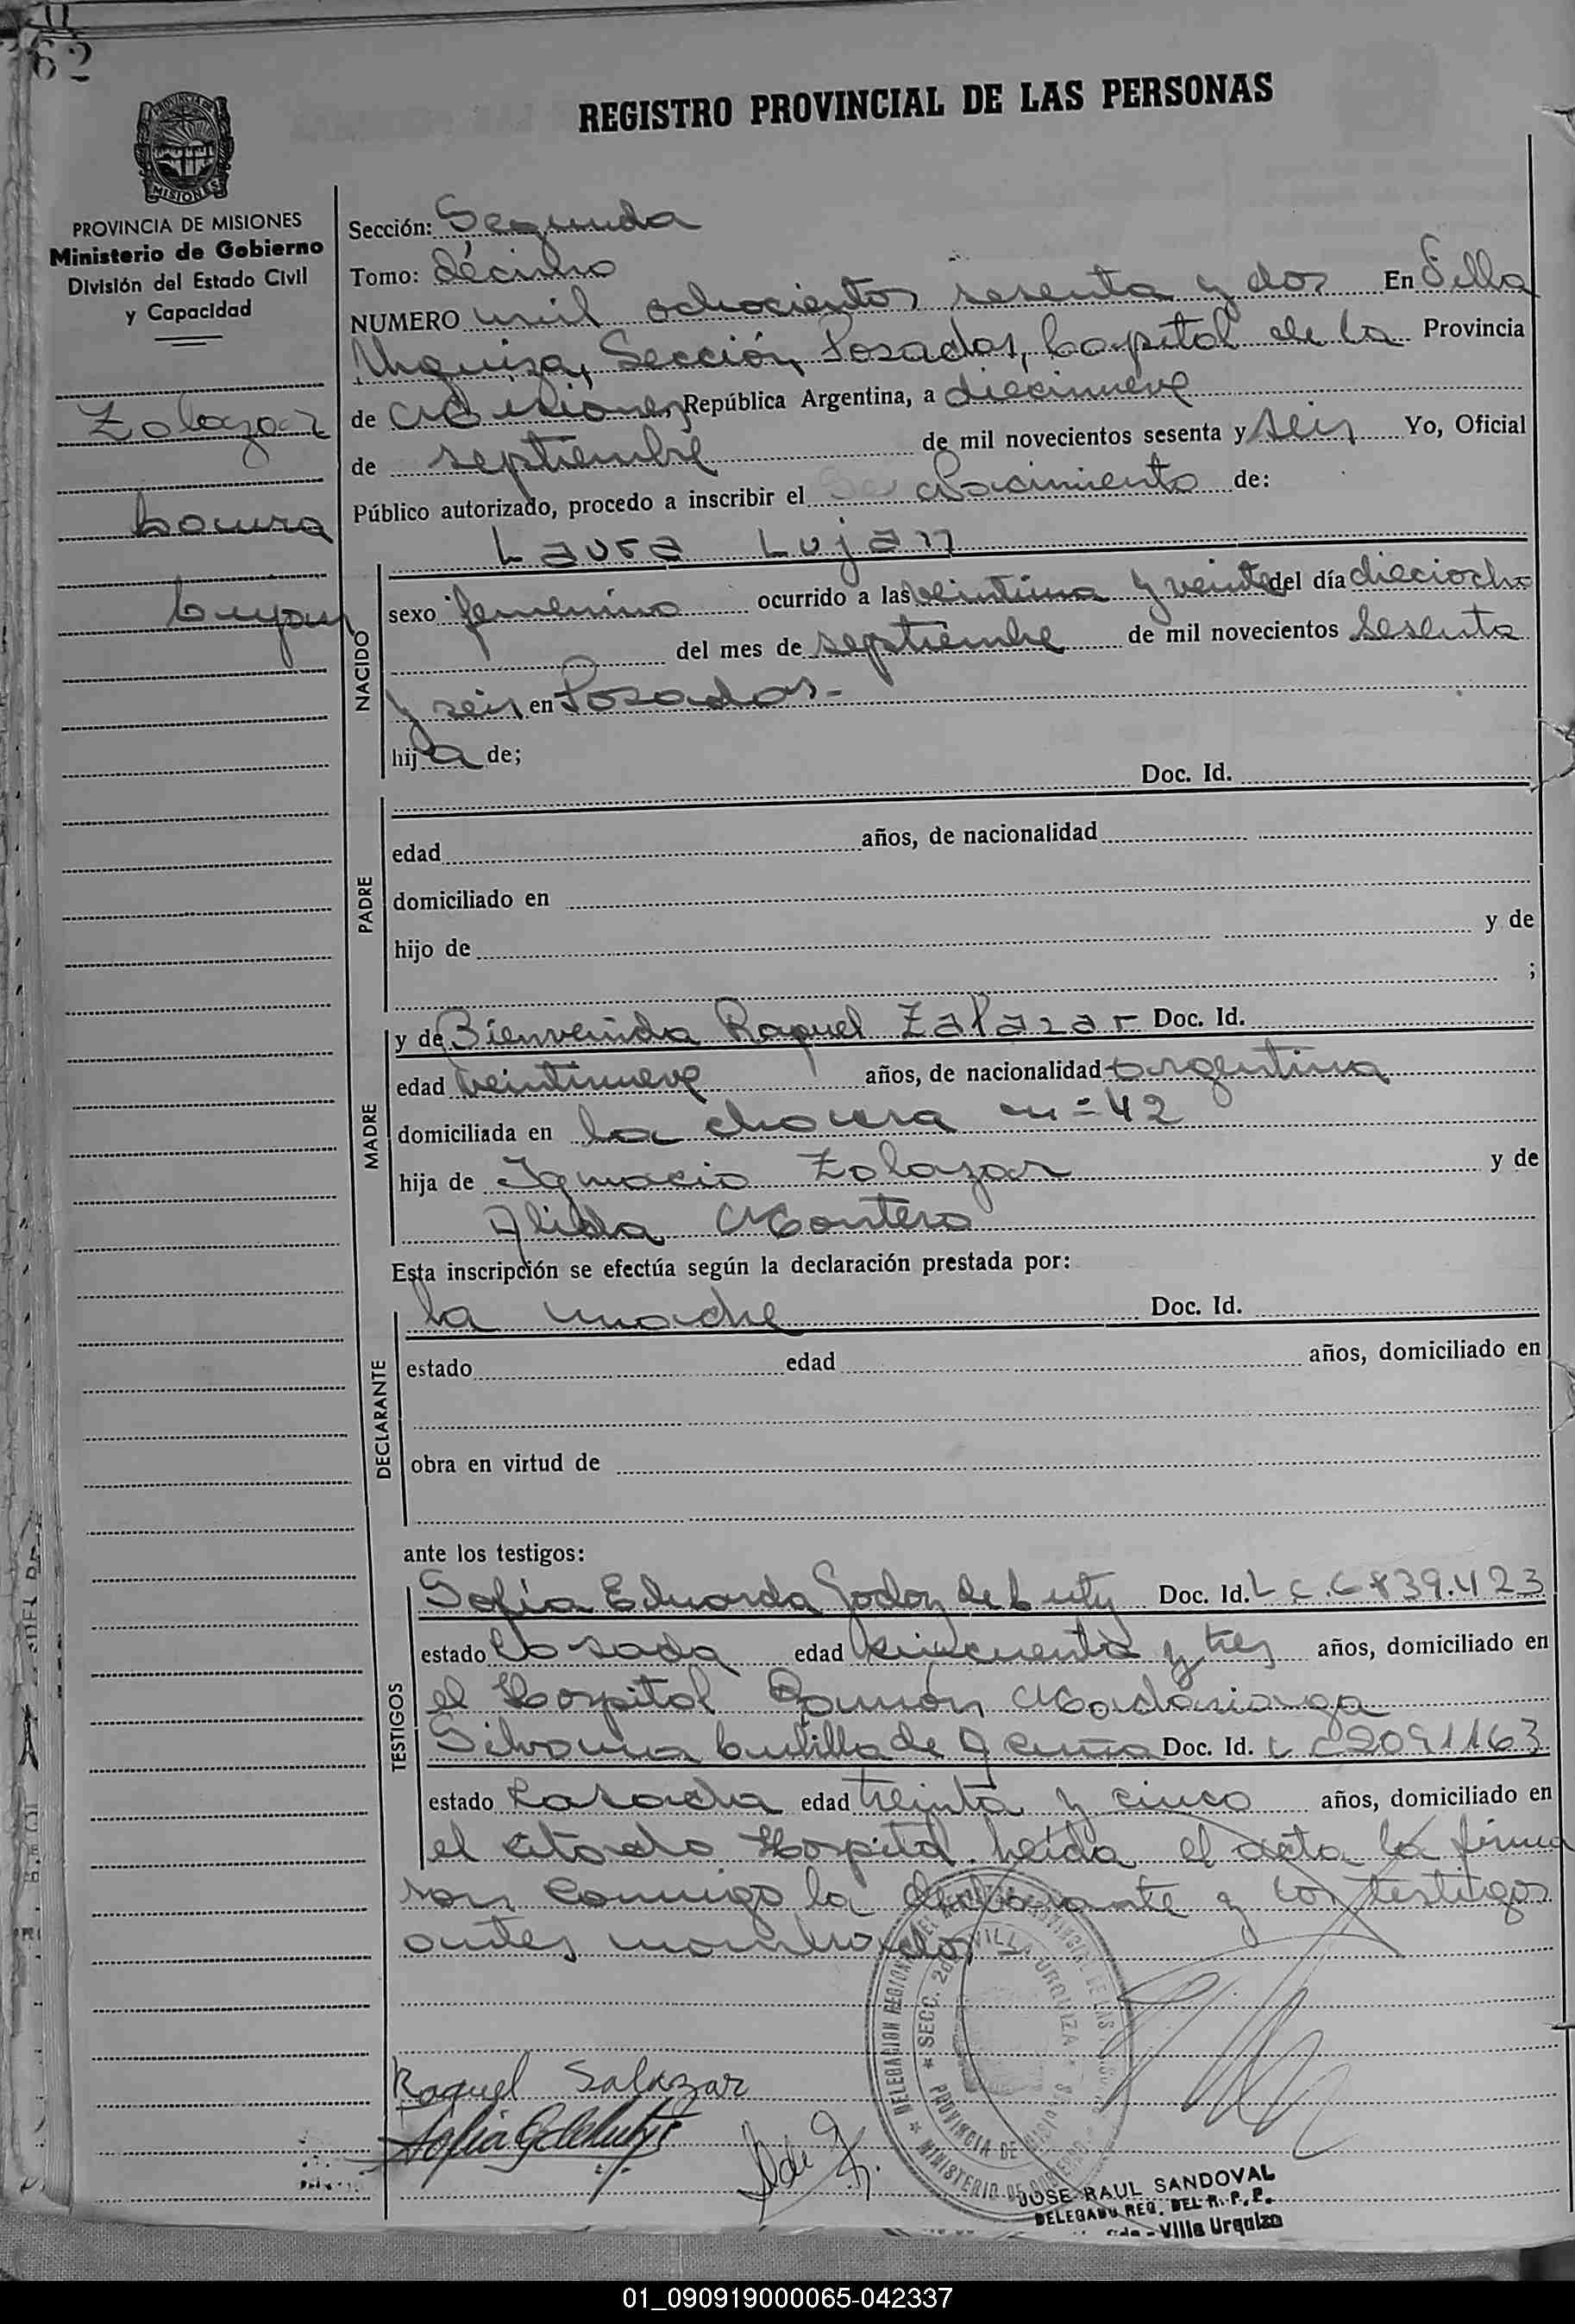 62
REGISTRO PROVINCIAL DE LAS PERSONAS
PROVINCIA DE MISIONES
Ministerio de Gobierno
División del Estado Civil
y Capacidad
Zalazar
Laura
Lujan
Sección: Segunda
Tomo: décimo
NUMERO mil ochocientos sesenta y dos En Villa
Urquiza, Sección Posadas, Capital de la Provincia
de Misiones, República Argentina, a diecinueve
de septiembre de mil novecientos sesenta y seis Yo, Oficial
Público autorizado, procedo a inscribir el Nacimiento de:
Laura Lujan
NACIDO
sexo femenino ocurrido a las veintiuna y veinte del día dieciocho
del mes de septiembre de mil novecientos sesenta
y seis en Posadas.-
hija de;
PADRE
Doc. Id.
edad años, de nacionalidad
domiciliado en
hijo de y de
;
MADRE
y de Bienvenida Raquel Zalazar Doc. Id.
edad veintinueve años, de nacionalidad argentina
domiciliada en la chacra n=42
hija de Ignacio Zalazar y de
Alida Montero
Esta inscripción se efectúa según la declaración prestada por:
DECLARANTE
la madre Doc. Id.
estado edad años, domiciliado en
obra en virtud de
ante los testigos:
TESTIGOS
Sofía Eduarda Godoy de Doc. Id. L C 6839.423
estado Casada edad cincuenta y tres años, domiciliado en
el Hospital Ramón Madariaga
Silvana de Acuña Doc. Id. L C 2091163
estado Casada edad treinta y cinco años, domiciliado en
el citado Hospital. Leída el acta la firma
ron conmigo la declarante y los testigos
antes nombrados
Raquel Salazar
DELEGACION REGIONAL DEL REGISTRO PROVINCIAL DE LAS PERSONAS
* SECC. 2da. VILLA URQUIZA *
PROVINCIA DE MISIONES
* MINISTERIO DE GOBIERNO
JOSE RAUL SANDOVAL
DELEGADO REG. DEL R. P. P.
2da - Villa Urquiza
01_090919000065-042337